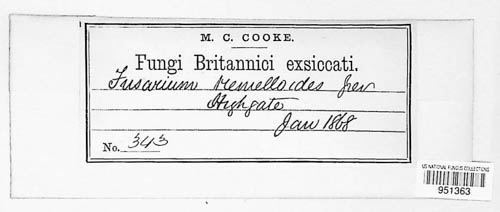 M. C. COOKE.
Fungi Britannici exsiccati.
Fusarium tremelloides Grev
Highgate
Jan 1868
No. 343
US NATIONAL FUNGUS COLLECTIONS
951363